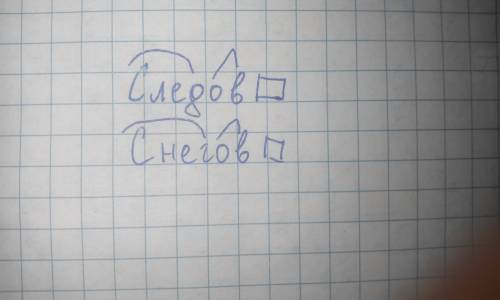 Следов
Снегов